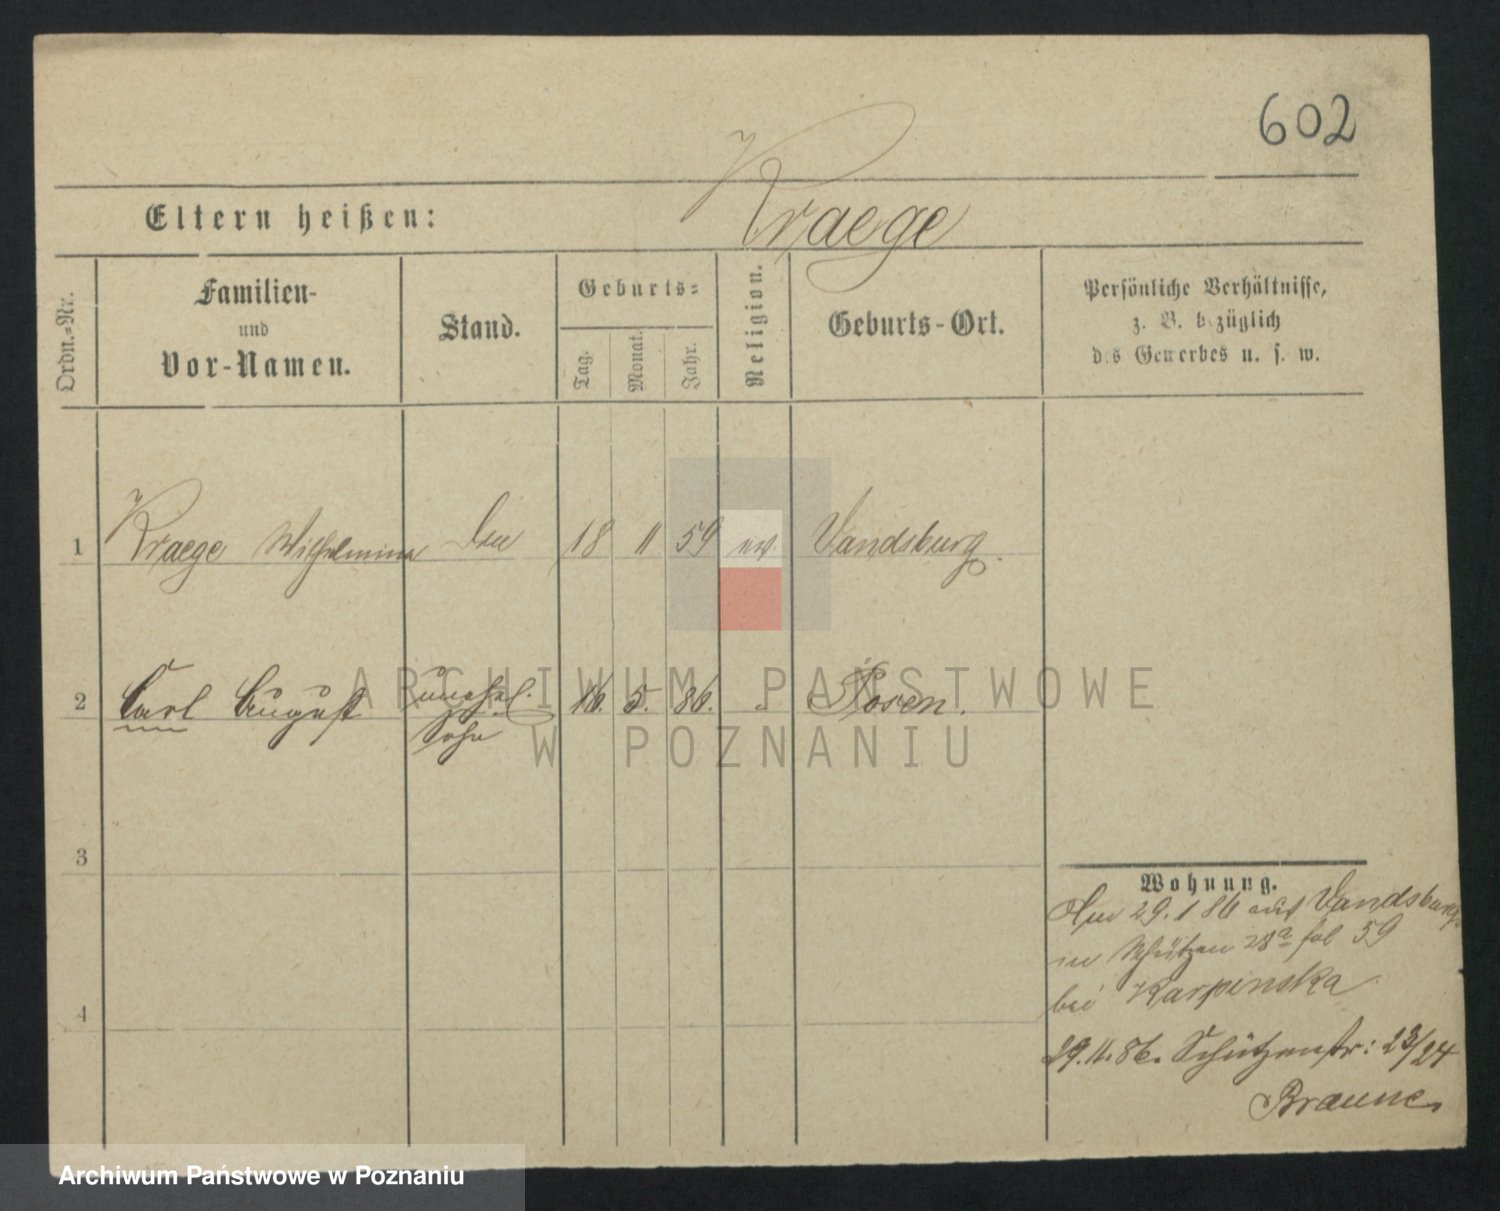 602
Kraege
Eltern heißen:
Ordn.-Nr.
Familien-
und
Vor-Namen.
Stand.
Geburts-
Tag.
Monat.
Jahr.
Religion.
Geburts-Ort.
Persönliche Verhältnisse,
z. B. bezüglich
des Gewerbes u. s. w.
1 Kraege Wilhelmina 18 11 59 ev. Vandsburg.
2 Carl August unehel. 16. 5. 86. " Posen.
Sohn
3
4
Wohnung.
29. 1 86 aus Vandsburg
in Schützen 28a 59
bei Karpinska
29.11.86. Schützenstr: 23/24
Braune
ARCHIWUM PAŃSTWOWE
W POZNANIU
Archiwum Państwowe w Poznaniu